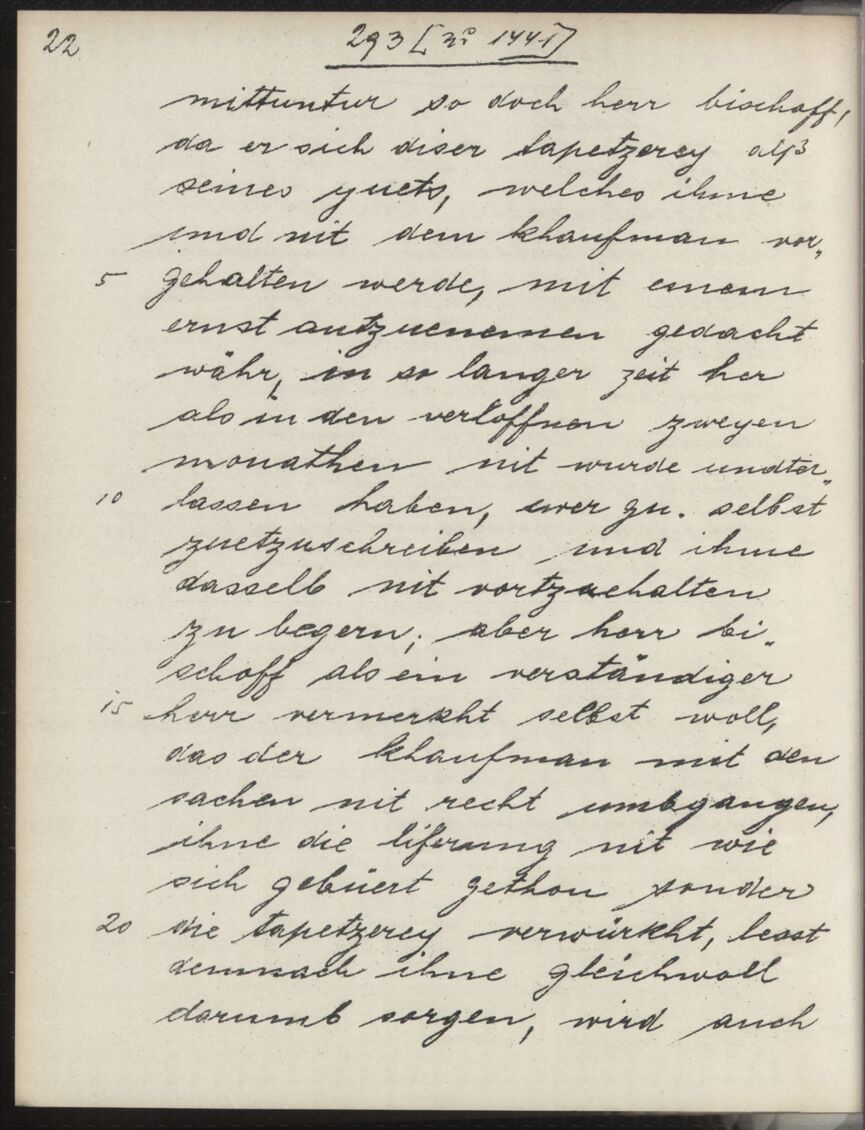 22
293 [3º 1441]
mittuntur so doch herr bischoff,
da er sich diser tapetzerey alß
seines guets, welches ihme
und nit dem khaufman vor„
5 gehalten werde, mit einem
ernst antzuenemen gedacht
währ, in so langer zeit her
als in den verloffnen zweyen
monathen nit wurde undter„
10 lassen haben, euer gn. selbst
zuetzuschreiben und ihme
dasselb nit vortzuehalten
zu begern; aber herr bi„
schoff als ein verständiger
15 herr vermerkht selbst woll,
das der khaufman mit den
sachen nit recht umbgangen,
ihne die liferung nit wie
sich gebüert gethon sonder
20 die tapetzerey verwürkht, lesst
demnach ihne gleichwoll
darumb sorgen, wird auch